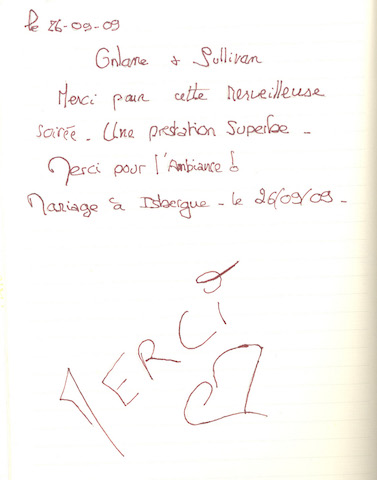 le 26-09-09
& Sullivan
Merci pour cette Merveilleuse
soirée - Une prestation Superbe -
Merci pour l'Ambiance !
Mariage à Isbergue - le 26/09/09 -
MERCI